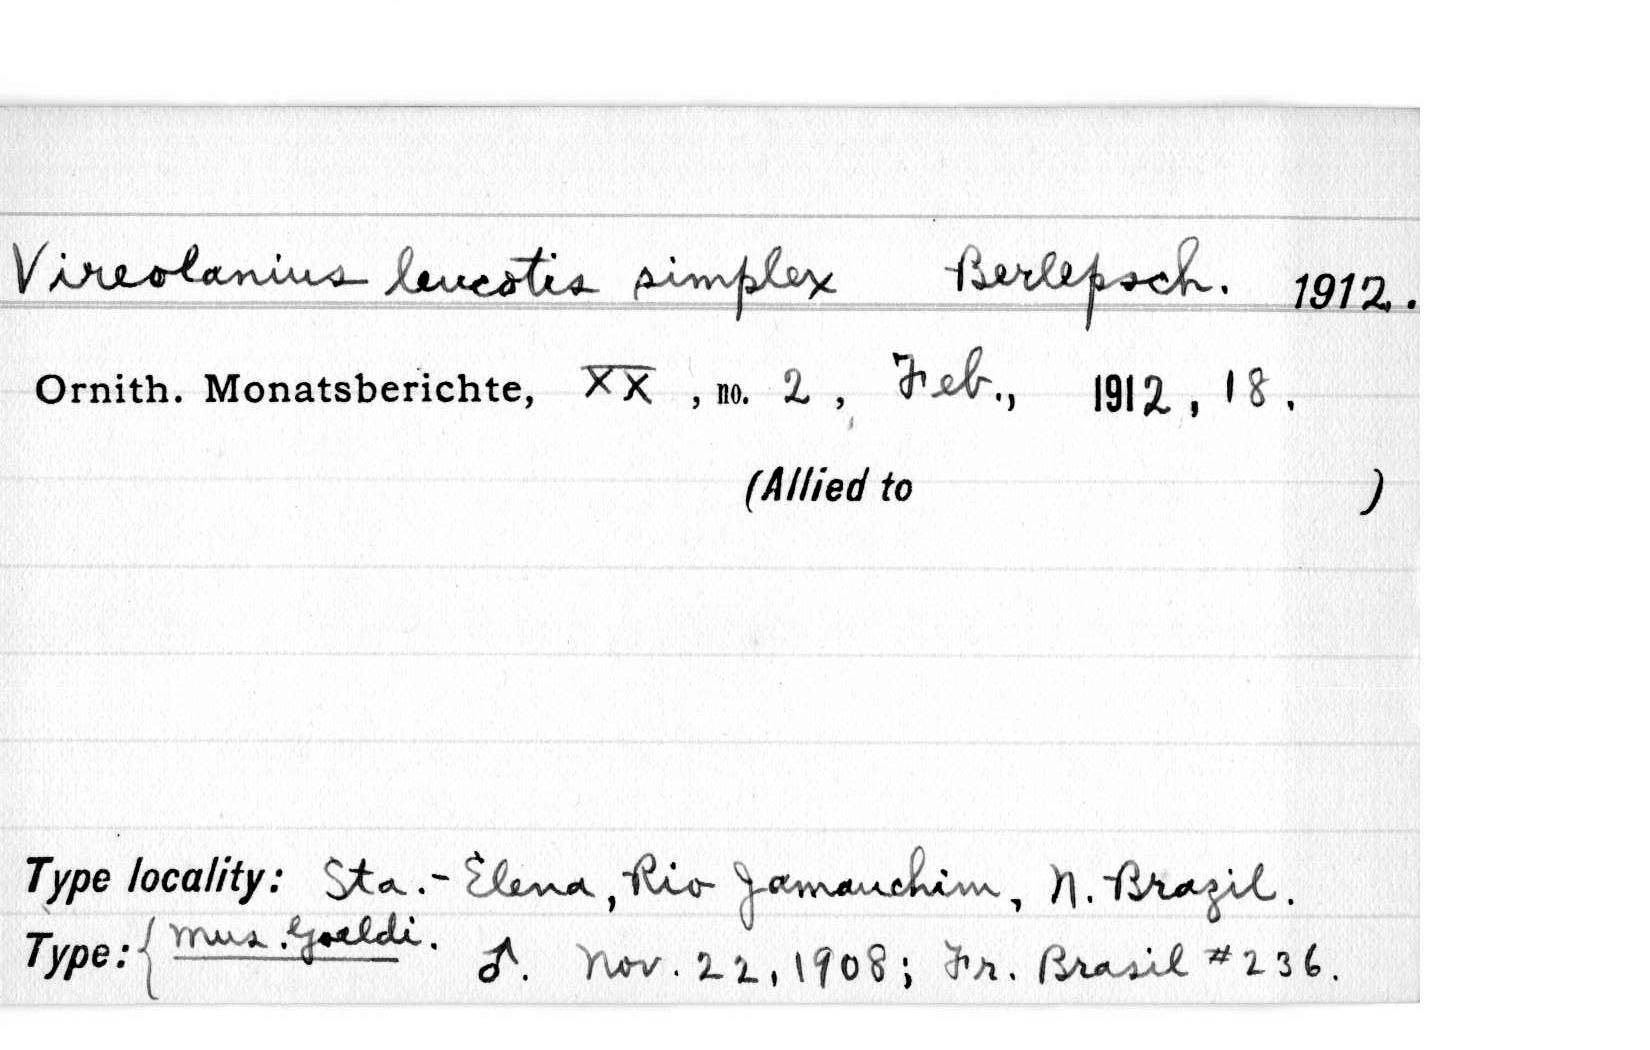 Vireolanius leucotis simplex Berlepsch. 1912.
Ornith. Monatsberichte, XX, no. 2, Feb., 1912, 18.
(Allied to )
Type locality: Sta.- Elena, Rio Jamauchim, N. Brazil.
Type: { Mus. Goeldi. ♂. Nov. 22, 1908; Fr. Brasil #236.